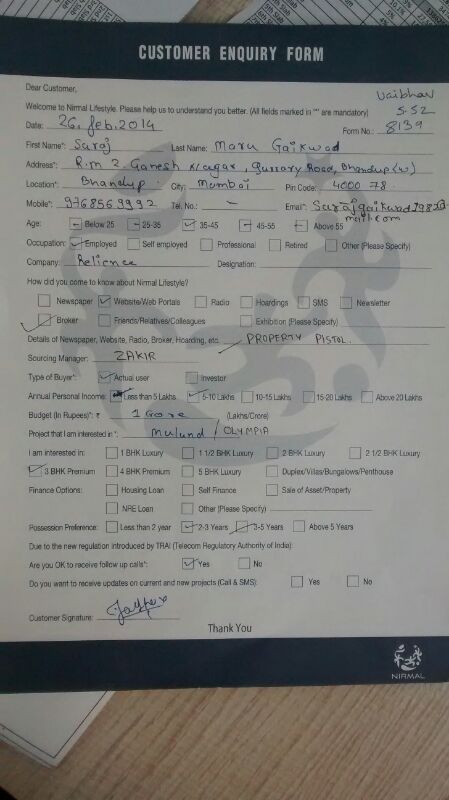 CUSTOMER ENQUIRY FORM
Dear Customer,
Vaibhav
Welcome to Nirmal Lifestyle. Please help us to understand you better. (All fields marked in "*" are mandatory)
5.52
Date: 26, feb, 2014 Form No.: 8139
First Name*: Saraj Last Name: Maru Gaikwad
Address*: R.m 2, Ganesh Nagar, Road, Bhandup (w)
Location*: Bhandup City: Mumbai Pin Code: 4000 78.
Mobile*: 9768569992 Tel. No.: - Email:
mail.com
Age: Below 25 25-35 35-45 45-55 Above 55
Occupation: Employed Self employed Professional Retired Other (Please Specify)
Company: Relience Designation:
How did you come to know about Nirmal Lifestyle?
Newspaper Website/Web Portals Radio Hoardings SMS Newsletter
Broker Friends/Relatives/Colleagues Exhibition (Please Specify)
Details of Newspaper, Website, Radio, Broker, Hoarding, etc. PROPERTY PISTOL.
Sourcing Manager: ZAKIR
Type of Buyer*: Actual user Investor
Annual Personal Income: Less than 5 Lakhs 5-10 Lakhs 10-15 Lakhs 15-20 Lakhs Above 20 Lakhs
Budget (In Rupees)*: ₹ 1 Crore (Lakhs/Crore)
Project that I am interested in*: mulund / OLYMPIA
I am interested in: 1 BHK Luxury 1 1/2 BHK Luxury 2 BHK Luxury 2 1/2 BHK Luxury
3 BHK Premium 4 BHK Premium 5 BHK Luxury Duplex/Villas/Bungalows/Penthouse
Finance Options: Housing Loan Self Finance Sale of Asset/Property
NRE Loan Other (Please Specify)
Possession Preference: Less than 2 year 2-3 Years 3-5 Years Above 5 Years
Due to the new regulation introduced by TRAI (Telecom Regulatory Authority of India):
Are you OK to receive follow up calls*: Yes No
Do you want to receive updates on current and new projects (Call & SMS): Yes No
Customer Signature:
Thank You
NIRMAL